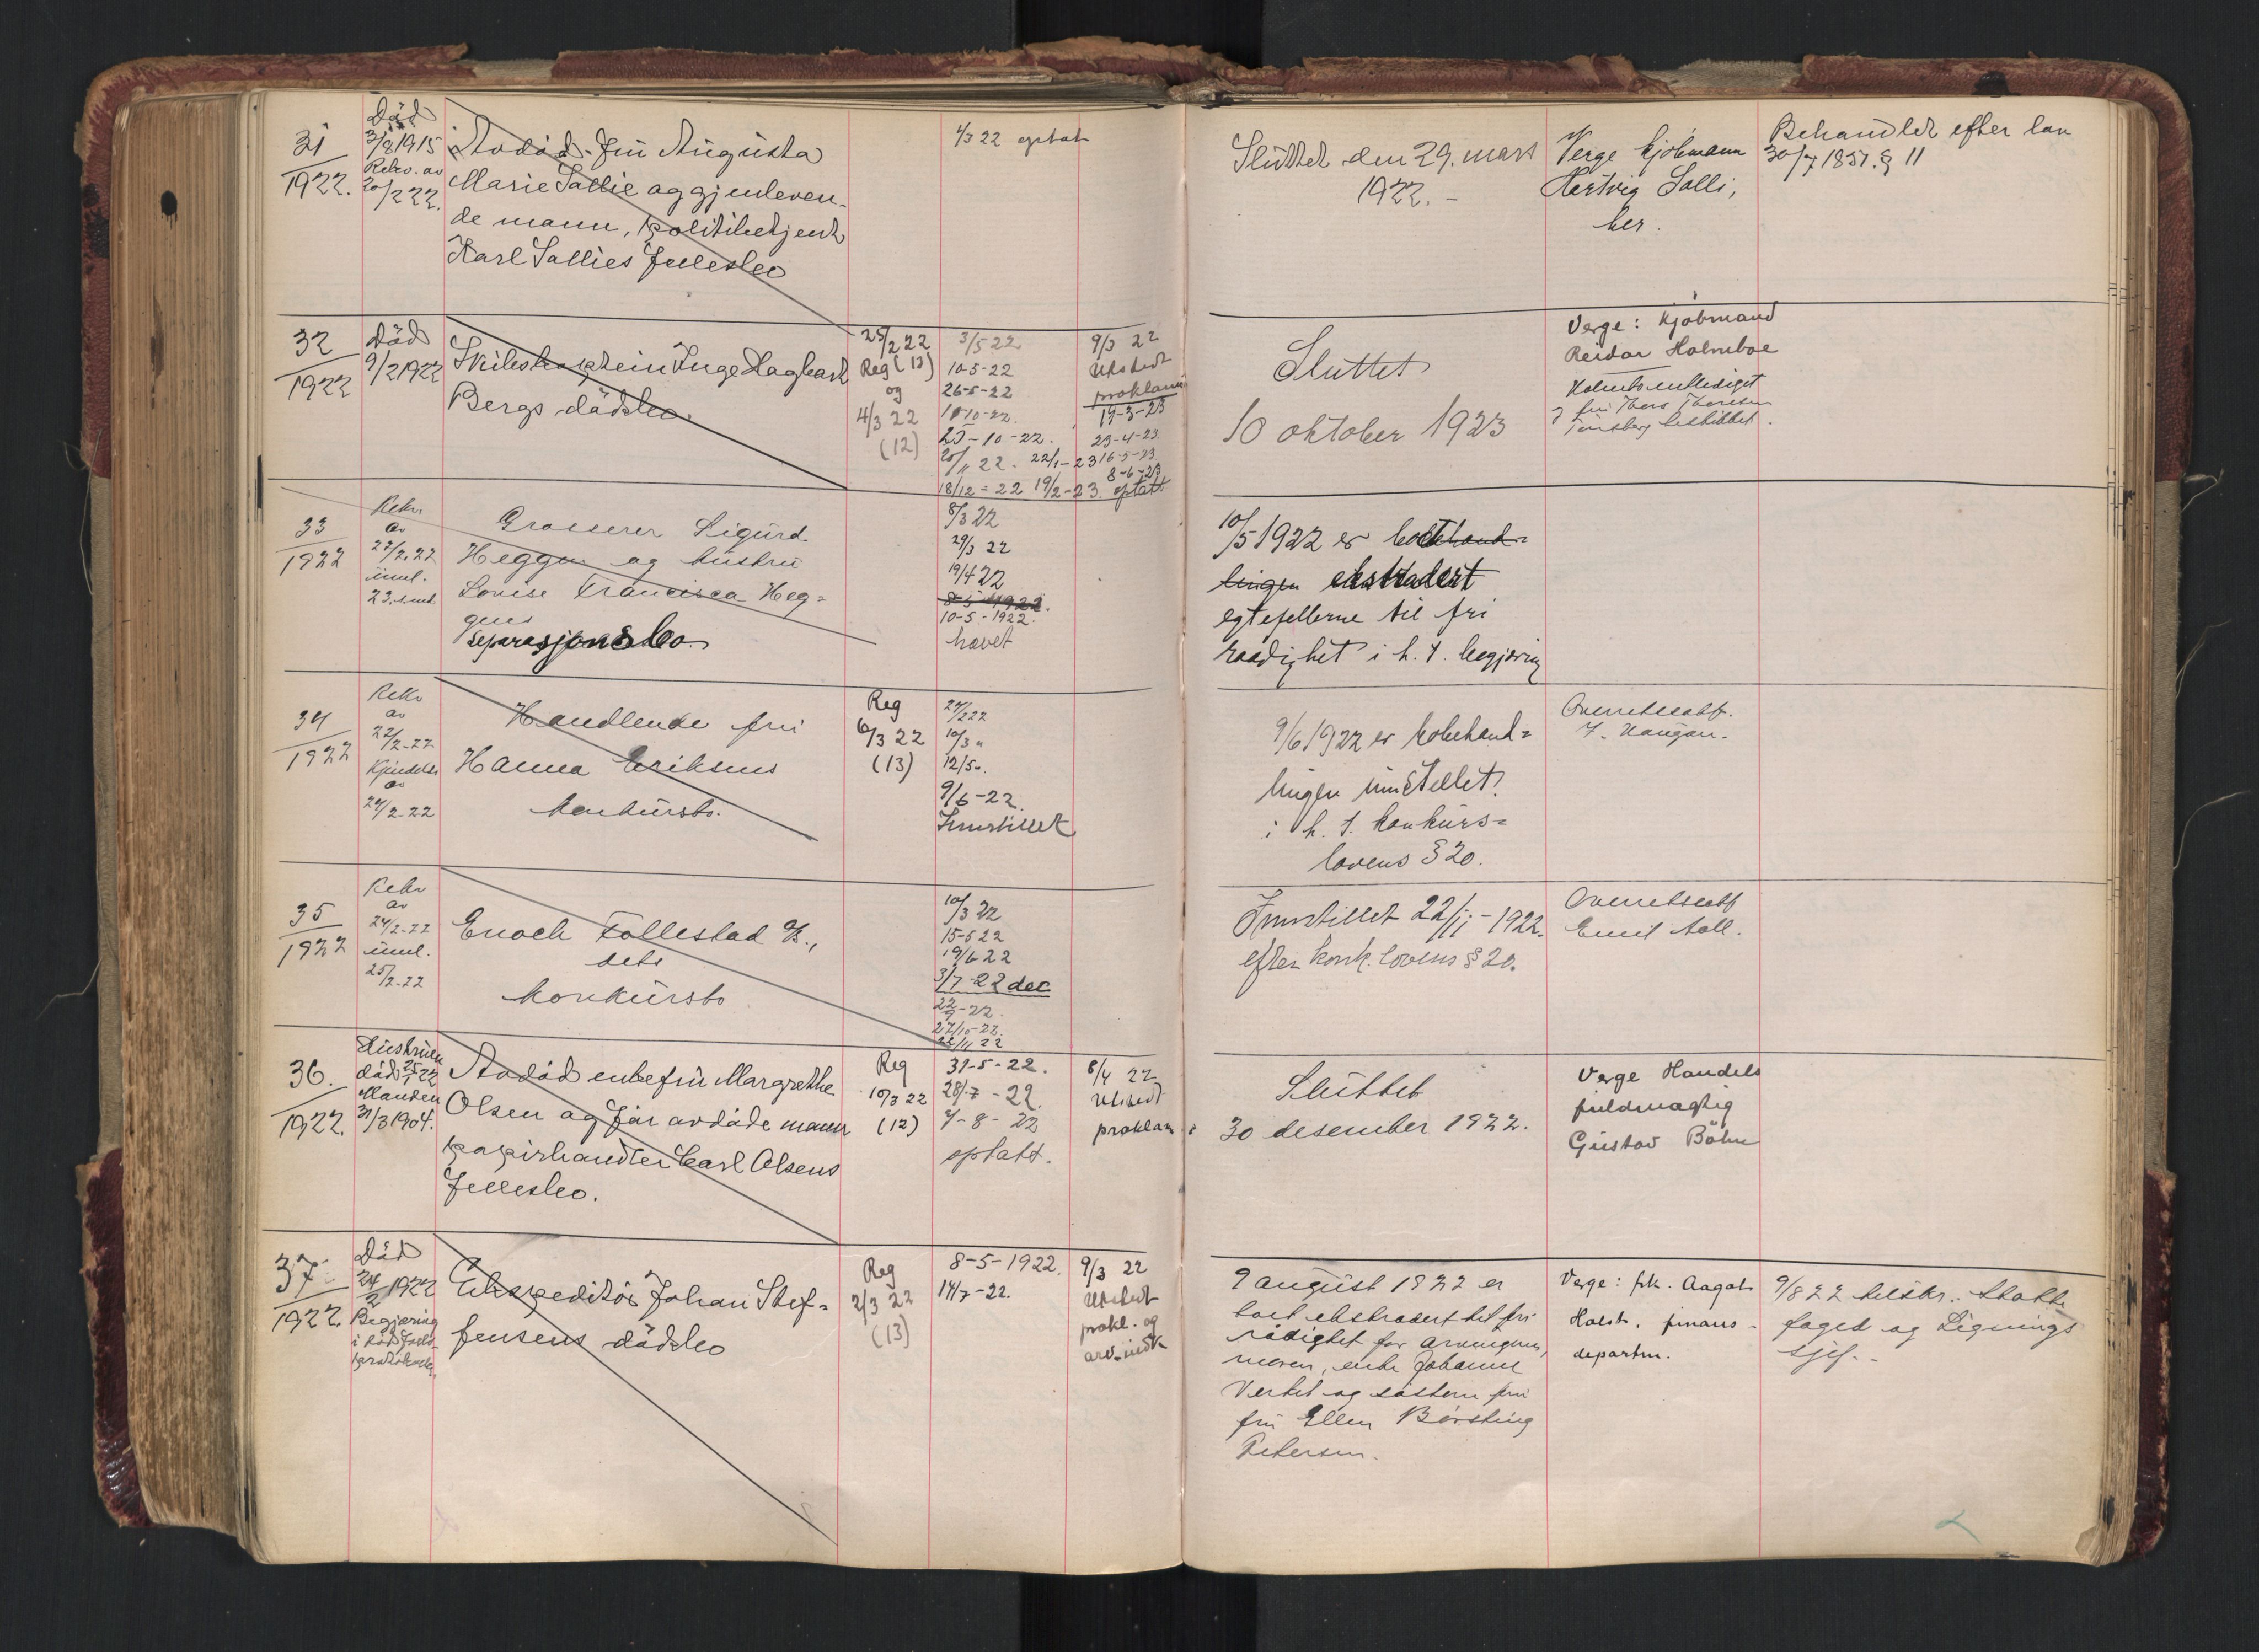 31
1922.
Död
31/8 1915
Rekv. av
20/2 22.
Avdöd fru Augusta
Marie Sallie og gjenleven-
de mann, politibetjent
Karl Sallies fellesbo
4/3 22 optat
Sluttet den 29. mars
1922. -
Verge kjöbmann
Hertvig Salli,
her.
Behandlet efter lov
30/7 1851. § 11
32
1922
Död
9/2 1922
Skibskaptein Inge Hagbart
Bergs dödsbo.
25/2 22
Reg (13)
og
4/3 22
(12)
3/5 22
10-5-22
26-5-22
10-10-22.
25-10-22.
20/11 22. 22/1-23
18/12-22 19/2-23.
9/3 22
Utstedt
proklama
19-3-23
23-4-23
16-5-23
8-6-23
optatt
Sluttet
10 oktober 1923
Verge: Kjöbmand
Reidar Holmboe
33
1922
Rekv
av
22/2.22
iml.
23. s.md.
Grosserer Sigurd
Heggen og hustru
Louise Francisca Heg=
gens
Separasjonsbo.
8/3 22
29/3 22
19/4 22
8-5-1922.
10-5-1922.
hævet
10/5 1922 er bobehand=
lingen ekstradert
egtefellerne til fri
raadighet i h. t. begjæring
34
1922
Rekv
av
22/2-22
Kjendelse
av
24/2-22
Handlende fru
Hanna Eriksens
konkursbo.
Reg
6/3 22
(13)
24/2 22
10/3 "
12/5 ".
9/6-22.
Innstillet
9/6 1922 er bobehand=
lingen innstillet
i h. t. konkurs=
lovens § 20.
Overretssakf.
35
1922
Rekv
av
24/2-22
iml.
25/2-22
Enoch Follestad %,
dets
konkursbo
10/3 22
15-5 22
19/6 22
3/7-22 dec
22/9-22.
27/10-22.
22/11 22
Innstillet 22/11-1922.
efter konk. lovens § 20.
Overretssakf
Emil Aall.
36.
1922.
Hustruen
död 25/1 22
Manden
31/3 1904.
Avdöd enkefru Margrethe
Olsen og før avdöde mann
papirhandler Carl Olsens
fellesbo.
Reg
10/3 22
(12)
31-5-22.
28/7-22.
4-8-22
optatt.
8/4 22
Utstedt
proklam
Sluttet
30 desember 1922.
Verge Handels
fuldmagtig
Gustav Böhn
37
1922.
Död
24/2 1922
Begjæring
Ekspeditör Johan Stef=
fensens dödsbo
Reg
2/3 22
(13)
8-5-1922.
14/7-22.
9/3 22
Utstedt
prokl. og
arv.indk
9 august 1922 er
boet ekstradert til fri
rådighet for arvingene,
moren, enke Johanne
og söstern fru
fru Ellen Børsting
Petersen.
Verge: frk. Aagot
Holst, finans-
departm.
9/8 22 tilskr. Skatte
foged og Lignings
sjef. -